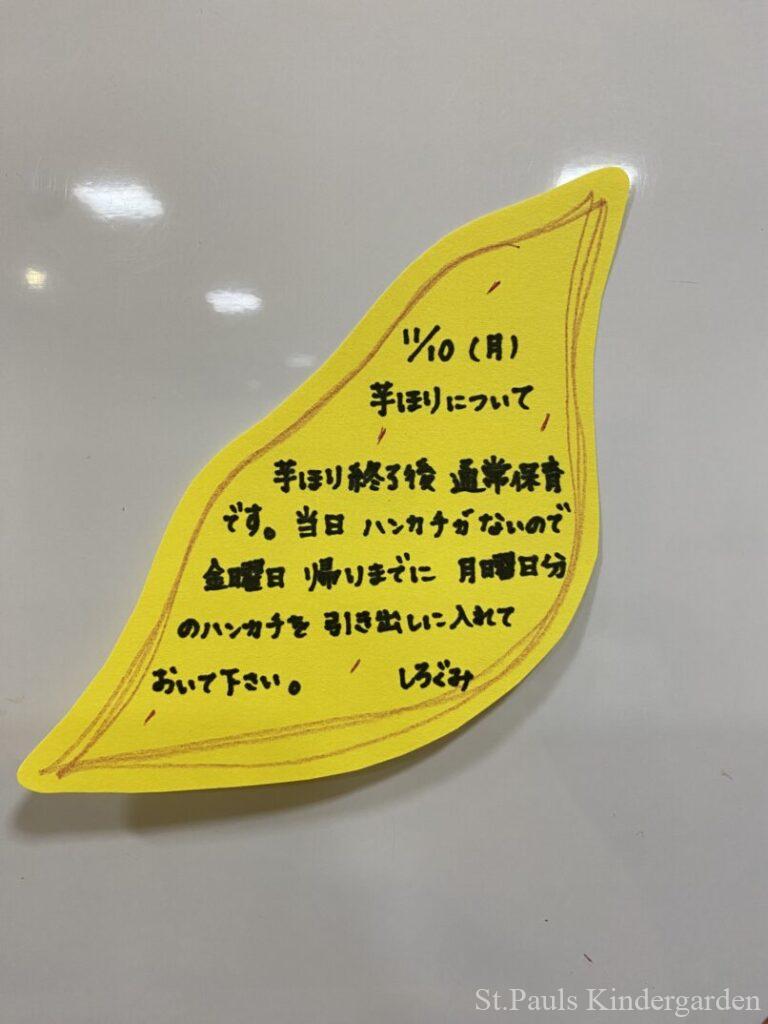 11/10 (月)
芋ほりについて
芋ほり終了後 通常保育
です。当日 ハンカチがないので
金曜日 帰りまでに 月曜日分
のハンカチを 引き出しに入れて
おいて下さい。 しろぐみ
St.Pauls Kindergarden